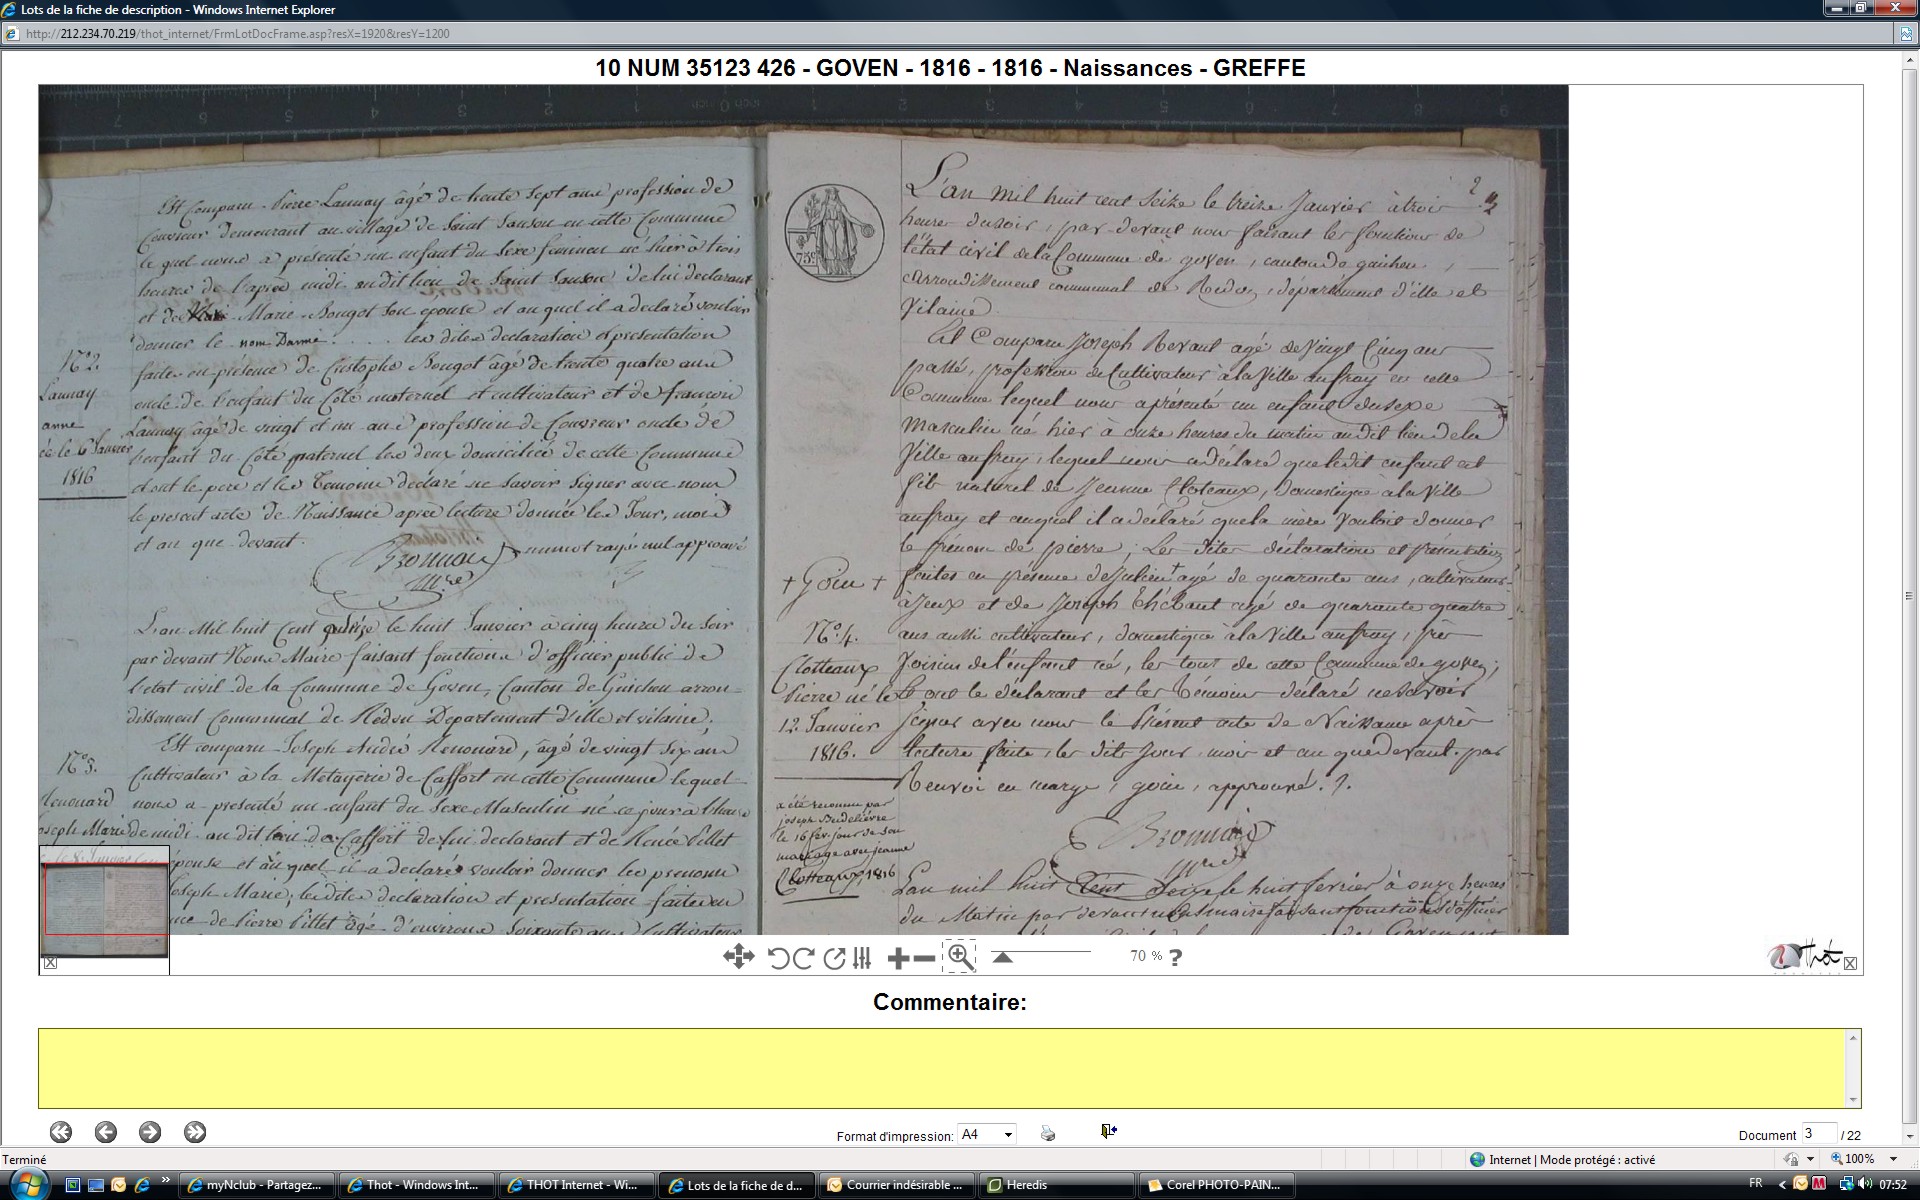 Lots de la fiche de description - Windows Internet Explorer
http://212.234.70.219/thot_internet/FrmLotDocFrame.asp?resX=1920&resY=1200
10 NUM 35123 426 - GOVEN - 1816 - 1816 - Naissances - GREFFE
Est comparu Pierre Launay âgé de trente sept ans profession de
Couvreur demeurant au village de Saint Sanson en cette Commune
le quel nous a présenté un enfant du sexe feminin né hier à trois
heures de l'après midi au dit lieu de Saint Sanson de lui declarant
et de Marie Bougot son epouse et au quel il a declaré vouloir
donner le nom Danne . . . . les dites declaration et presentation
faites en présence de Cristophe Bougot âgé de trente quatre ans
oncle de l'enfant du Coté maternel et cultivateur et de francois
Launay âgé de vingt et un ans profession de Couvreur oncle de
l'enfant du Coté paternel les deux domiciliés de cette Commune
dont le pere et les Temoins declaré ne savoir signer avec nous
le present acte de Naissance après lecture donnée les Jour, mois
et an que devant. un mot rayé nul approuvé
N°2.
Launay
anne
née le 6 Janvier
1816
L'an Mil huit Cent le huit Janvier a cinq heures du soir
par devant Nous Maire faisant fonctions d'officier public de
l'etat civil de la Commune de Goven, Canton de Guichen arron-
dissement Communal de Redon Departement d'ille et vilaine.
Est comparu Joseph André Renouard, âgé de vingt six ans
Cultivateur à la Metayerie de Caffort en cette Commune lequel
nous a presenté un enfant du sexe Masculin né ce jour à l'heure
de midi au dit lieu de Caffort de lui declarant et de Renée Pillet
epouse et au quel il a declaré vouloir donner les prenoms
Joseph Marie, les dites declaration et presentation faites en
de Pierre Pillet âgé d'environ Soixante ans Cultivateur
N°3.
Renouard
Joseph Marie
2
L'an mil huit cent seize le treize Janvier à trois
heures du soir, par-devant nous faisant les fonctions de
l'état civil de la Commune de goven, canton de guichen,
arrondissement communal de Redon, département d'ille et
Vilaine.
Est Comparu Joseph Revaut agé de vingt Cinq ans
passé, profession de Cultivateur à la Ville aufray en cette
Commune lequel nous a présenté un enfant du sexe
Masculin né hier à onze heures du matin au dit lieu de la
Ville aufray, lequel nous a déclaré que ledit enfant est
fils naturel de Jeanne Cloteaux, domestique à la Ville
aufray et auquel il a déclaré que la mère vouloit donner
le prénom de pierre; Les dites déclaration et présentation
faites en présence de Julien + agé de quarante ans, cultivateur
à Jeux et de Joseph Thébaut agé de quarante quatre
ans aussi cultivateur, domestique à la Ville aufray, près
Voisins de l'enfant né, les tous de cette Commune de goven;
Et ont le déclarant et les témoins déclaré ne savoir
signer avec nous le Présent acte de Naissance après
lecture faite, les dits jour, mois et an que devant. par
Renvoi en marge, goin, approuvé.
+ Goin +
N°4.
Clotteaux
Pierre né le
12 Janvier
1816.
a été reconnu par
joseph Budelièvre
le 16 fev. jour de son
mariage avec jeanne
Clotteaux, 1816
L'an mil huit Cent Seize le huit fevrier à onze heures
du Matin par devant nous maire faisant fonctions d'officier
70 %
Thot
Commentaire:
Format d'impression: A4
Document 3 / 22
Terminé
Internet | Mode protégé : activé
100%
myNclub - Partagez...
Thot - Windows Int...
THOT Internet - Wi...
Lots de la fiche de d...
Courrier indésirable ...
Heredis
Corel PHOTO-PAIN...
FR
07:52